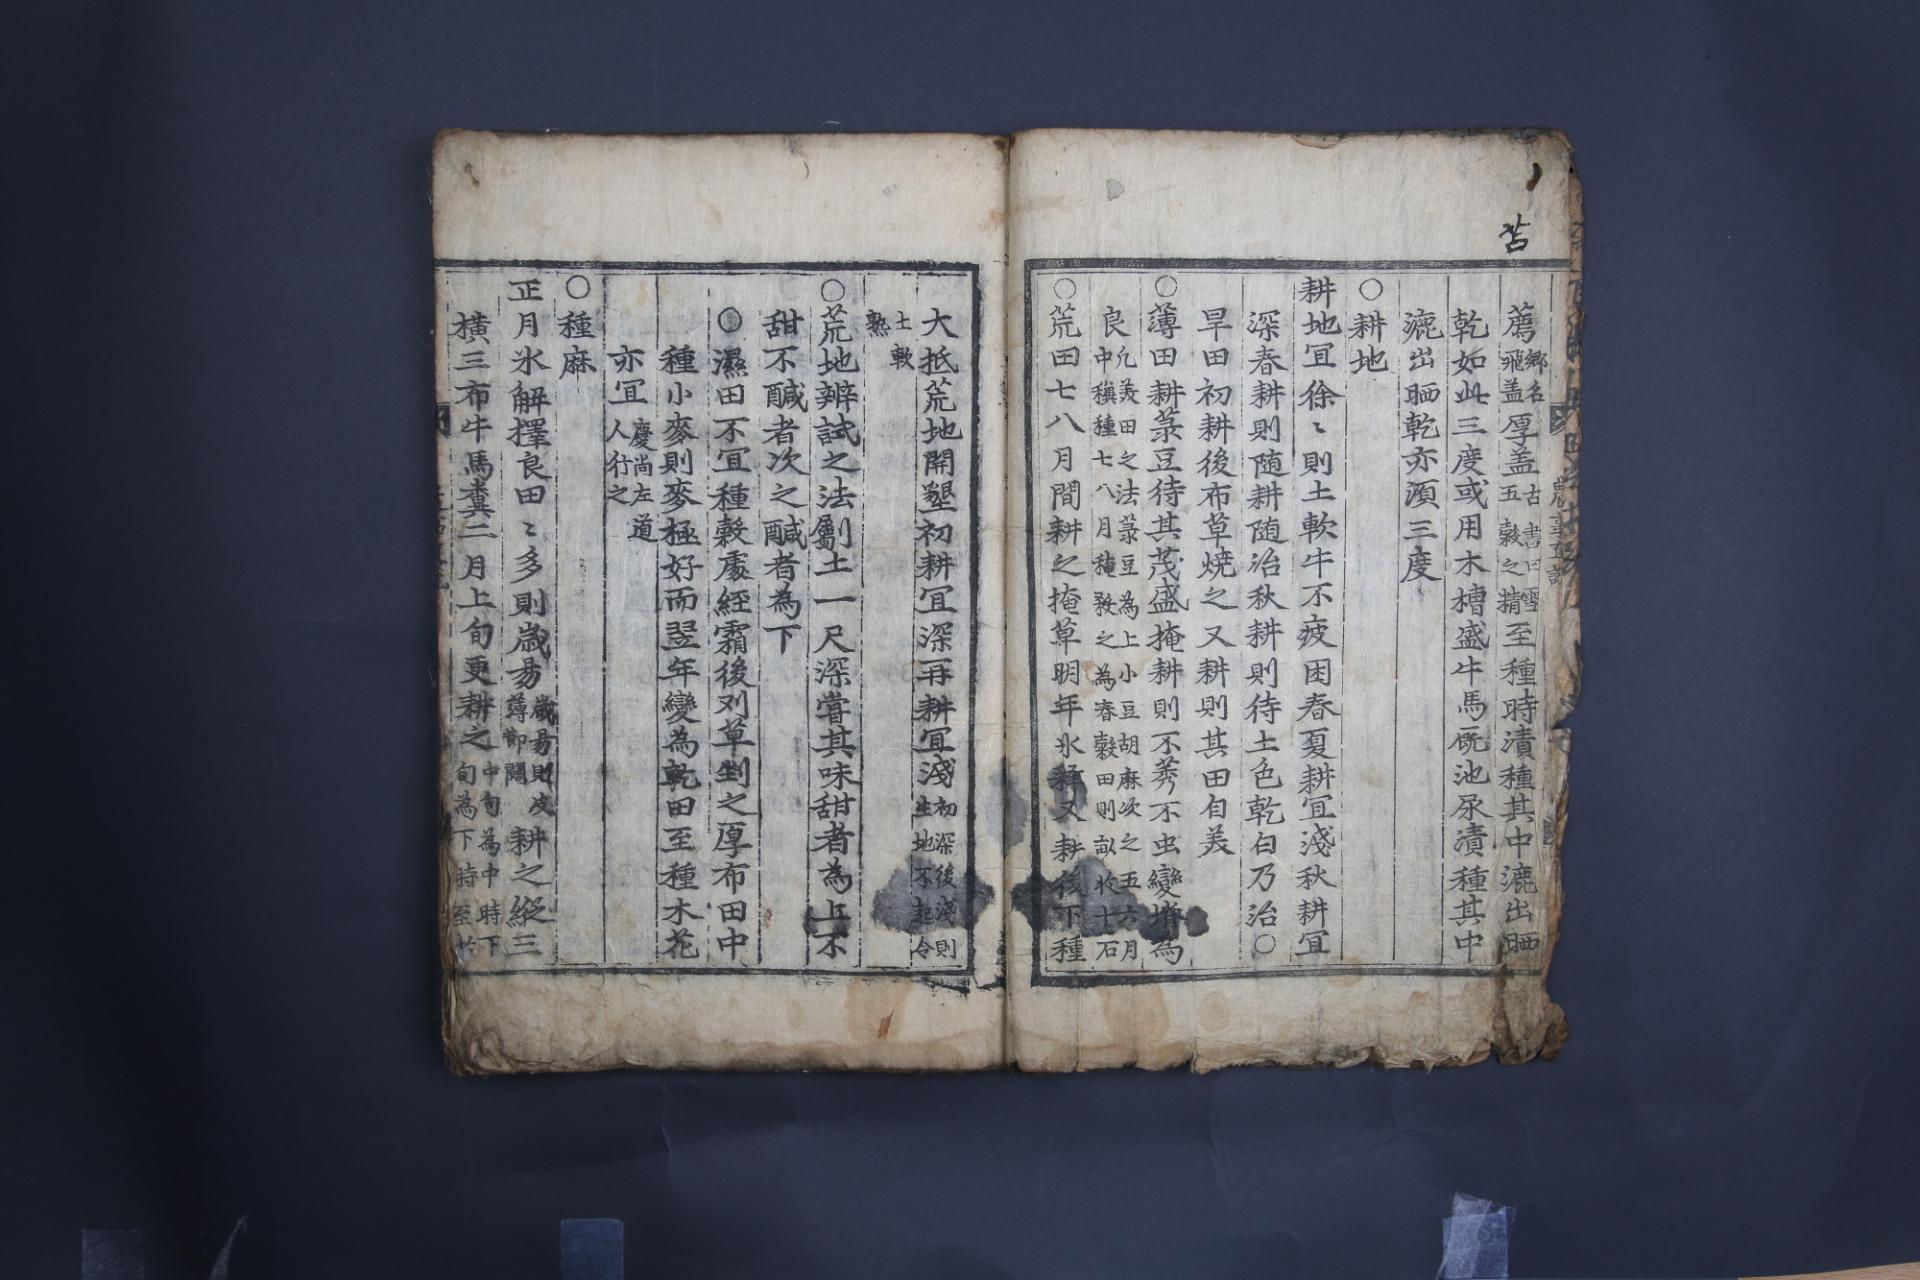 苫
薦鄕名飛盖厚盖古書曰雪五穀之精至種時漬種其中漉出晒
乾如此三度或用木槽盛牛馬厩池尿漬種其中
漉出晒乾亦須三度
○耕地
耕地冝徐〻則土軟牛不疲困春夏耕冝淺秋耕冝
深春耕則随耕随治秋耕則待土色乾白乃治○
旱田初耕後布草燒之又耕則其田自美
○薄田耕菉豆待其茂盛掩耕則不莠不虫變塉為
良凡美田之法菉豆為上小豆胡麻次之五六月中穊種七八月掩殺之為春穀田則畒收十石
○荒田七八月間耕之掩草明年氷釋又耕後下種
大抵荒地開墾初耕冝深再耕冝淺初深後淺則生地不起令
土軟熟
○荒地辨試之法斸土一尺深嘗其味甜者為上不
甜不醎者次之醎者為下
○濕田不冝種穀處經霜後刈草剉之厚布田中
種小麥則麥極好而翌年變為乾田至種木花
亦冝慶尚左道人行之
○種麻
正月氷解擇良田〻多則歲昜歲昜則皮薄節闊耕之縱三
横三布牛馬糞二月上旬更耕之中旬為中時下旬為下時至於